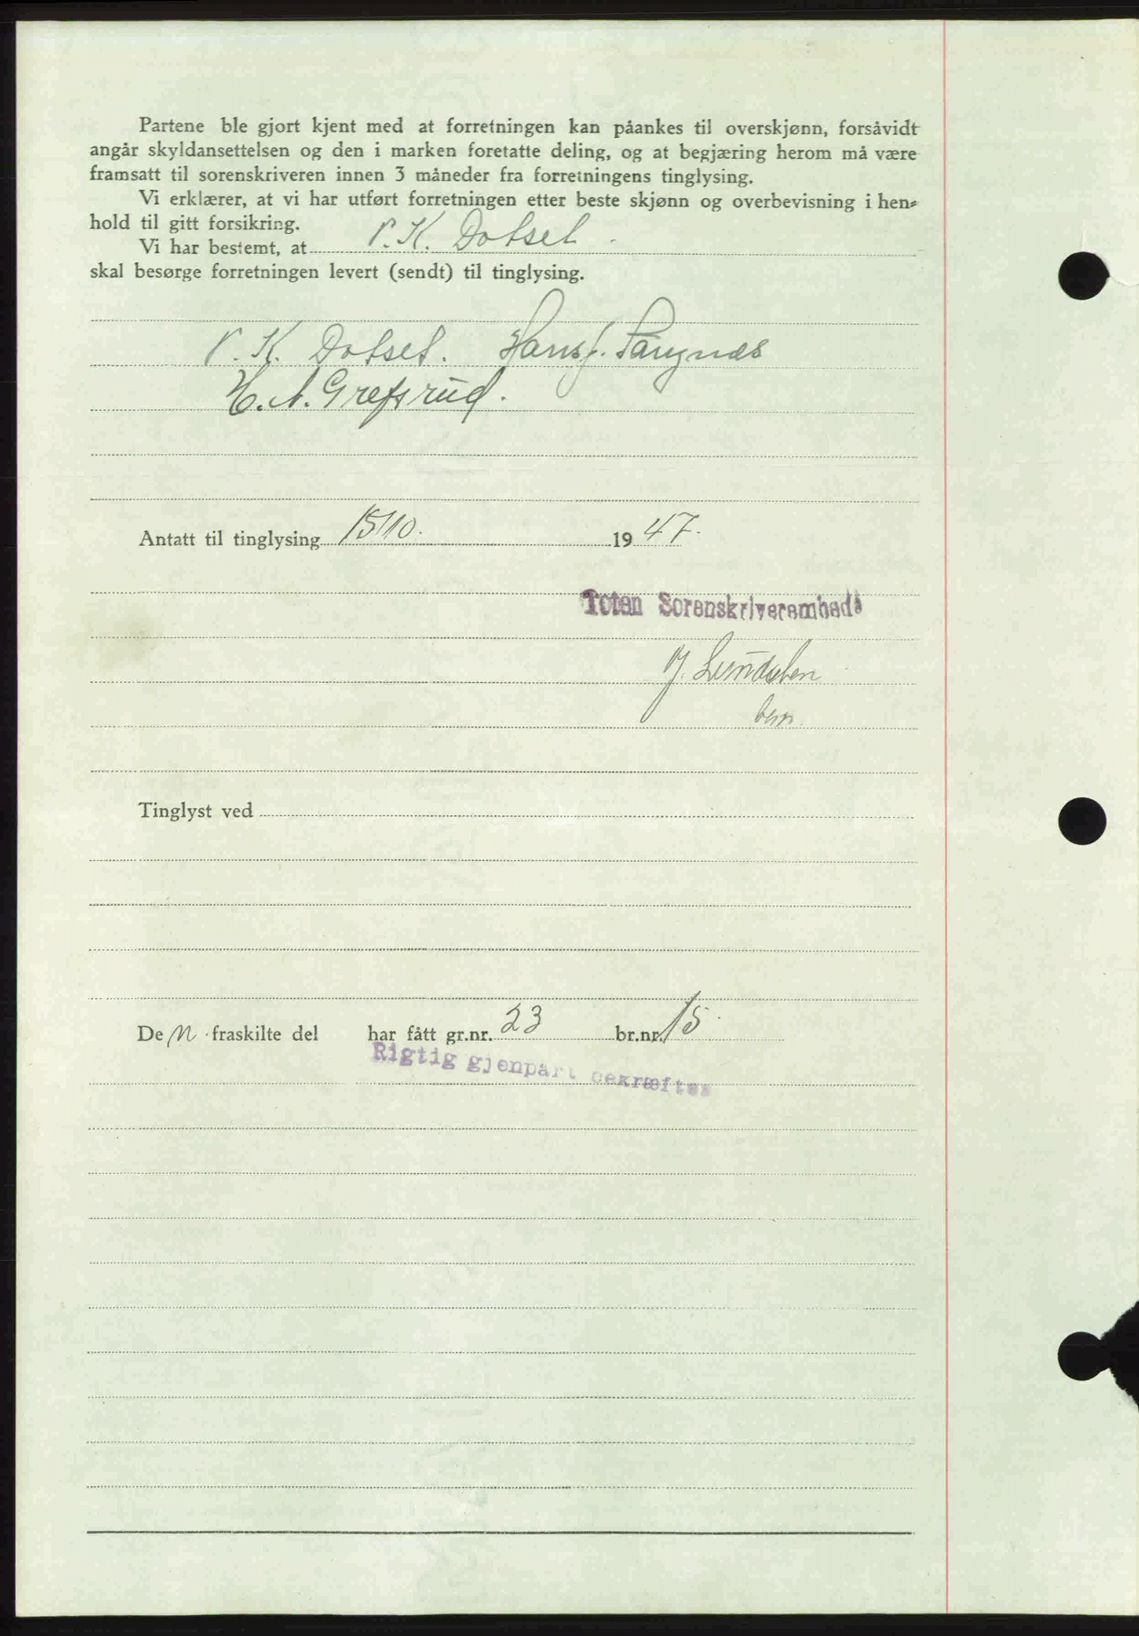 Partene ble gjort kjent med at forretningen kan påankes til overskjønn, forsåvidt
angår skyldansettelsen og den i marken foretatte deling, og at begjæring herom må være
framsatt til sorenskriveren innen 3 måneder fra forretningens tinglysing.
Vi erklærer, at vi har utført forretningen etter beste skjønn og overbevisning i hen-
hold til gitt forsikring.
Vi har bestemt, at P. K. Dotset.
skal besørge forretningen levert (sendt) til tinglysing.
P. K. Dotset. Hans J.
H. A. Grefsrud.
Antatt til tinglysing 15/10. 1947.
Toten Sorenskriverembede
Tinglyst ved
De n fraskilte del har fått gr.nr. 23 br.nr. 15.
Rigtig gjenpart bekræftes